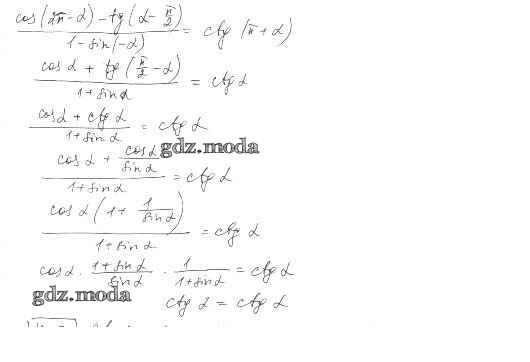 (cos(2π-α)-tg(α-π/2))/(1-sin(-α)) = ctg(π+α)
(cosα+tg(π/2-α))/(1+sinα) = ctgα
(cosα+ctgα)/(1+sinα) = ctgα
gdz.moda
(cosα+cosα/sinα)/(1+sinα) = ctgα
(cosα(1+1/sinα))/(1+sinα) = ctgα
cosα · (1+sinα)/sinα · 1/(1+sinα) = ctgα
gdz.moda
ctgα = ctgα